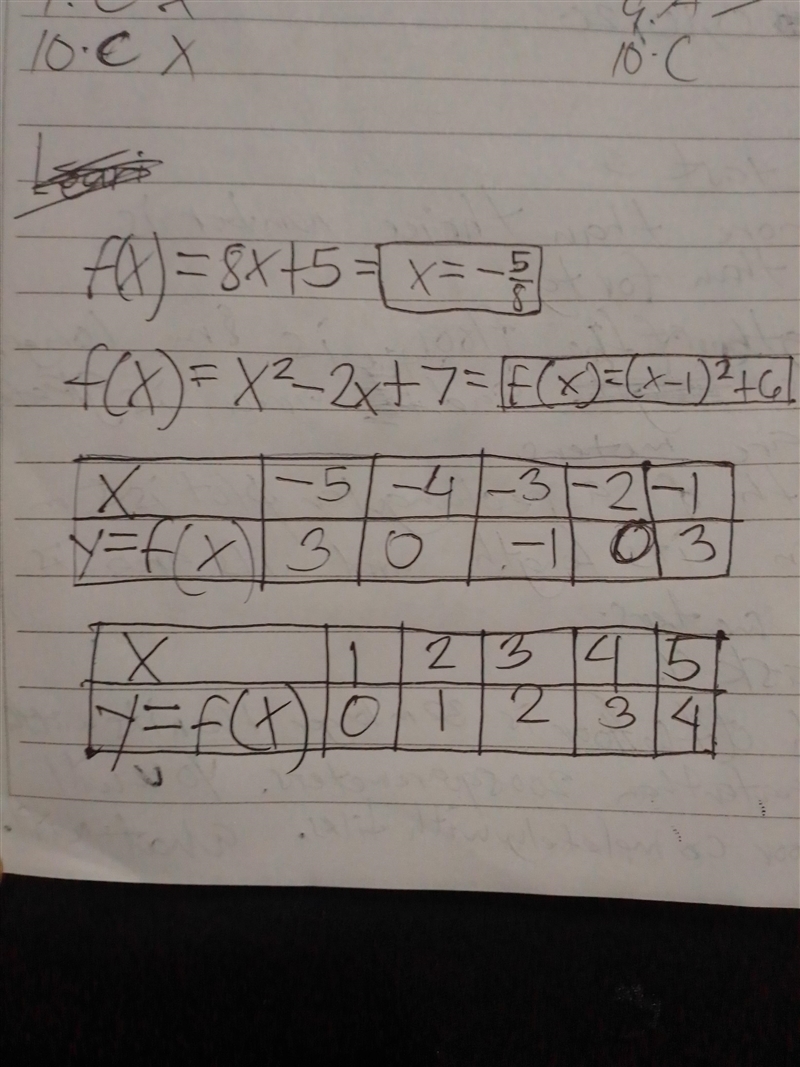 10. C X
10. C
f(x) = 8x+5 = x = -5/8
f(x) = x²-2x+7 = f(x)=(x-1)²+6
x -5 -4 -3 -2 -1
y=f(x) 3 0 -1 0 3
x 1 2 3 4 5
y=f(x) 0 1 2 3 4